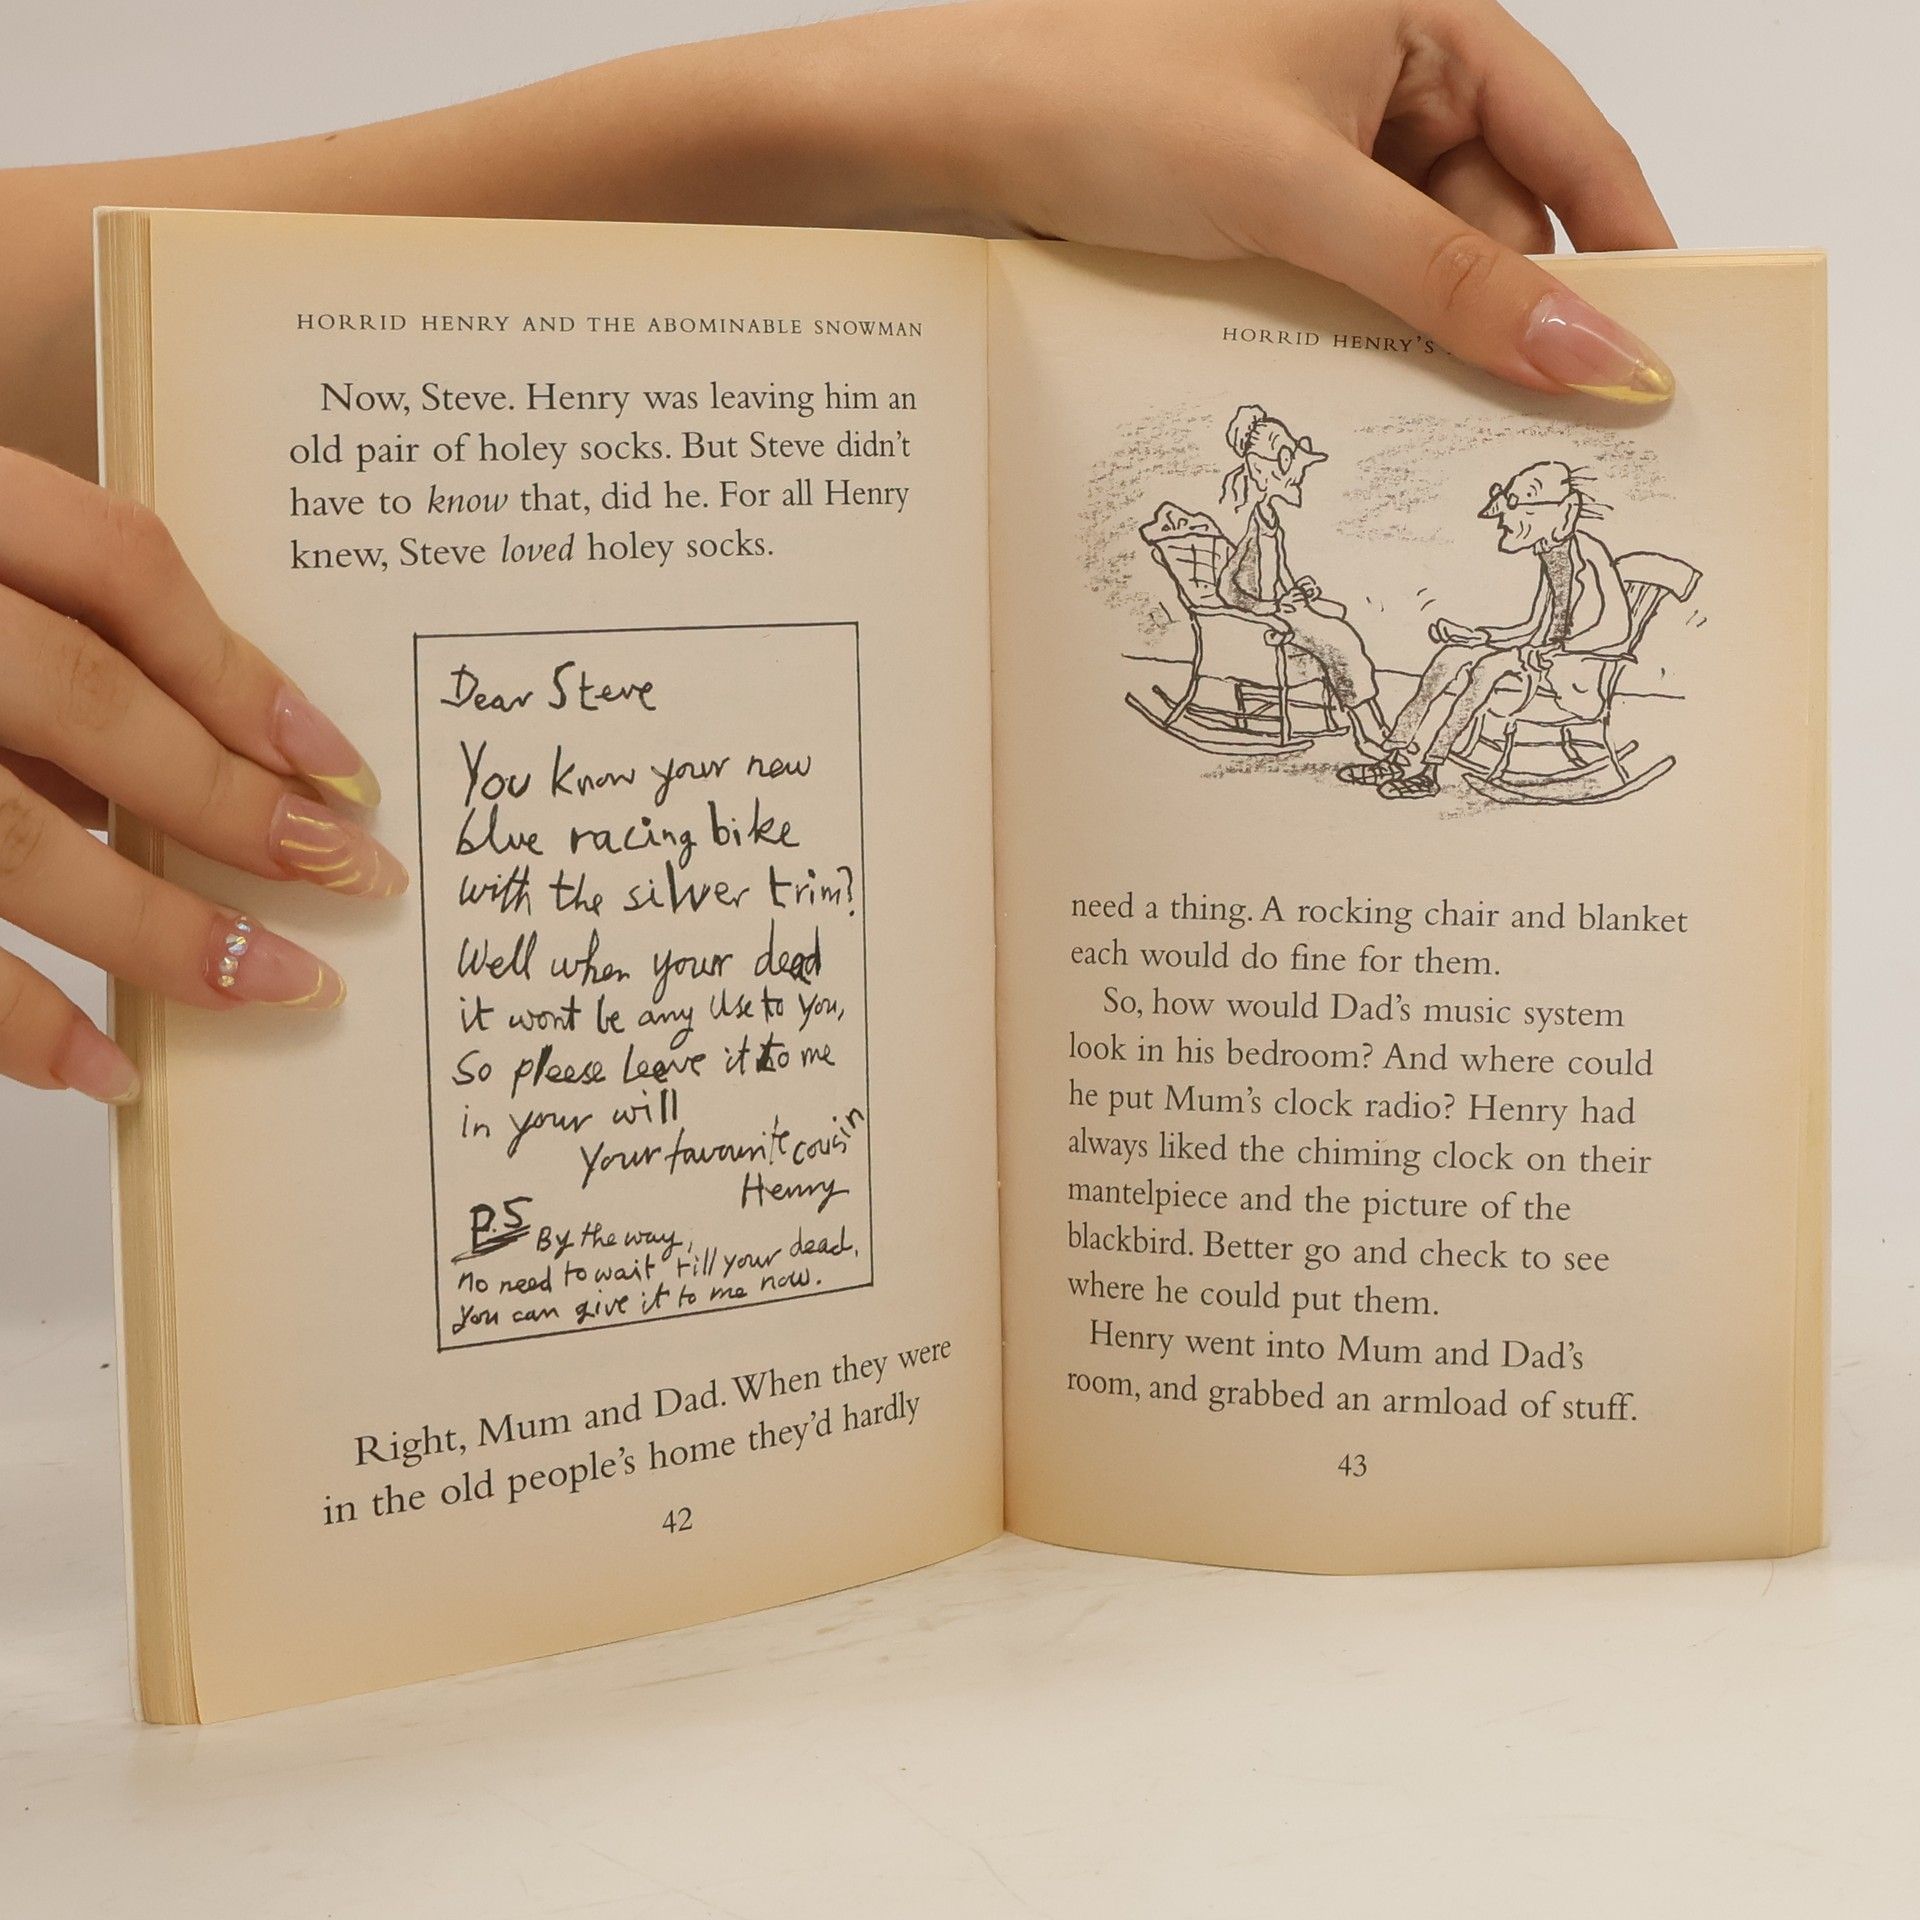 HORRID HENRY AND THE ABOMINABLE SNOWMAN
Now, Steve. Henry was leaving him an
old pair of holey socks. But Steve didn't
have to know that, did he. For all Henry
knew, Steve loved holey socks.
Dear Steve
You know your new
blue racing bike
with the silver trim?
Well when your dead
it wont be any use to you,
So pleese leeve it to me
in your will
Your favourite cousin
Henry
P.S By the way,
no need to wait till your dead,
you can give it to me now.
Right, Mum and Dad. When they were
in the old people's home they'd hardly
42
HORRID HENRY'S
need a thing. A rocking chair and blanket
each would do fine for them.
So, how would Dad's music system
look in his bedroom? And where could
he put Mum's clock radio? Henry had
always liked the chiming clock on their
mantelpiece and the picture of the
blackbird. Better go and check to see
where he could put them.
Henry went into Mum and Dad's
room, and grabbed an armload of stuff.
43